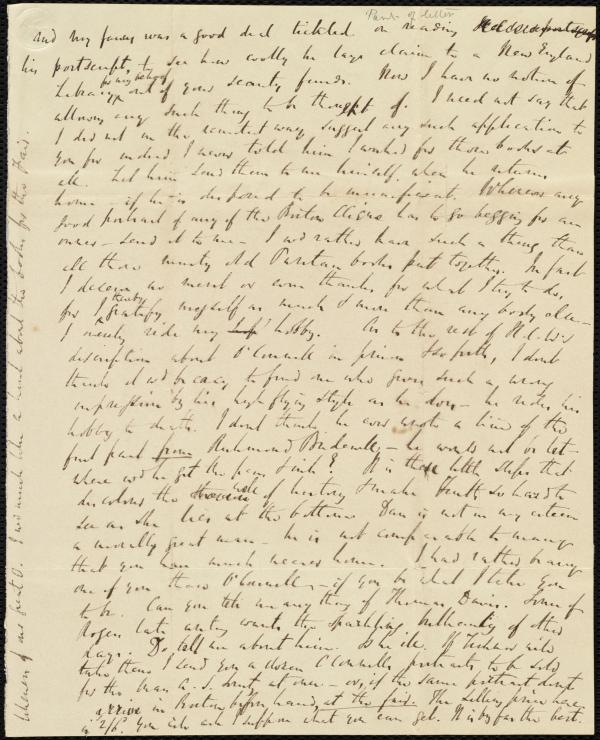 Part of letter
and my fancy was a good deal tickled on reading
his postscript, to see how coolly he lays claim to a New England
Library, for my behoof out of your security funds. Now I have no notion of
allowing any such thing to be thought of. I need not say that
I did not in the remotest way suggest any such application to
you for indeed I never told him I wished for those books at
all. Let him send them to me himself, when he returns
home - if he is disposed to be munificent. Whereas any
good portrait of any of the Boston Clique has to go begging for an
owner - send it to me - I wd rather have such a thing than
all those musty old Puritan books put together. In fact
I deserve no merit or even thanks for what I try to do,
for I thereby gratify myself as much & more than any body else -
I merely ride my hobby. As to the rest of H.C.W's
description about O'Connell in prison & so forth, I dont
think it wd be easy to find one who gives such a wrong
impression by his high flying style as he does - he rides his
hobby to death. I dont think he ever wrote a line of the
first part from Richmond Bridewell - he would not be let -
where wd he get the pen & ink? It is these little slips that
discolour the whole of history & make Truth so hard to
see as she lies at the bottom. Dan is not in my esteem
a morally great man - he is not comparable to many
that you have much nearer home. I had rather be any
one of you than O'Connell - if you be what I take you
to be. Can you tell me any thing of Thomas Davis. Some of
Rogers late writing wants the sparkling of other
days. Do tell me about him. Is he ill. If
take them I send you a dozen O'Connell's portraits, to be sold
for the at once - or, if the same portrait dont
arrive in Boston before hand, at the fair. The selling price here
is 2/6. You will ask I suppose what you can get. It is by far the best
likeness of our great O. I was much like a hand about the books for the Fair.